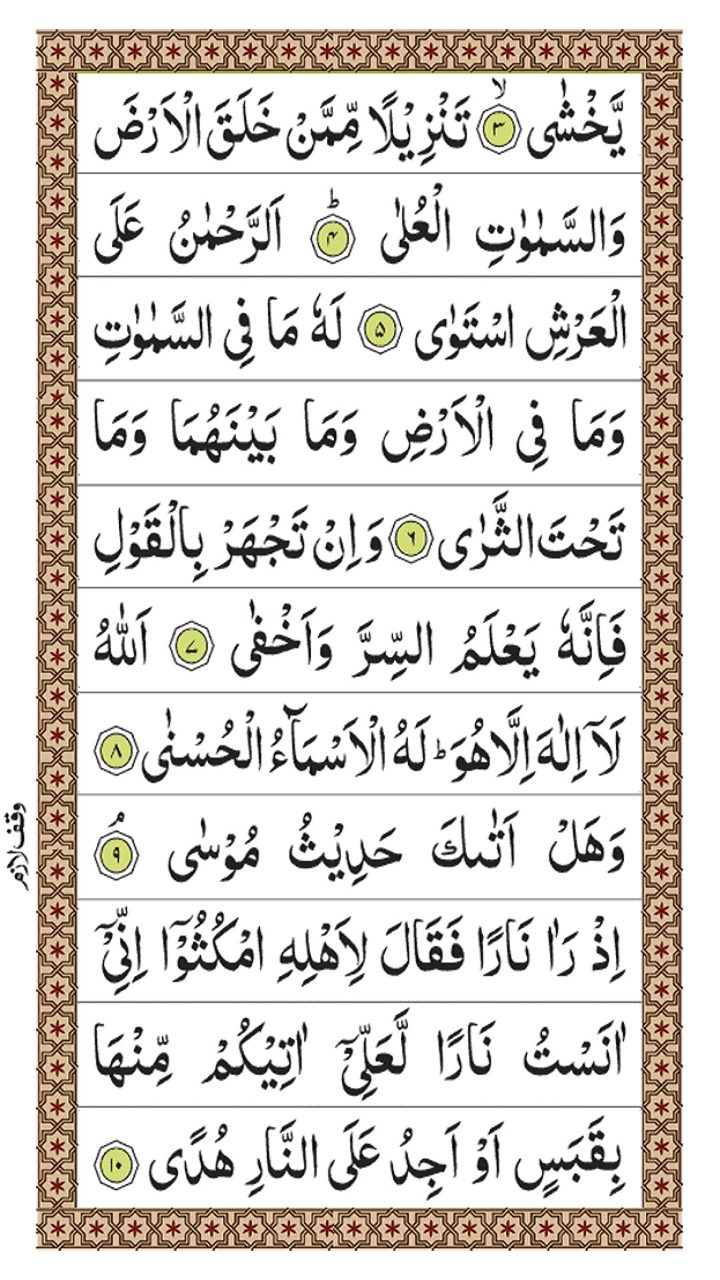 يَّخۡشٰى ۙ‏ ﴿۳﴾ تَنۡزِيۡلًا مِّمَّنۡ خَلَقَ الۡاَرۡضَ
وَالسَّمٰوٰتِ الۡعُلٰى ؕ‏ ﴿۴﴾ اَلرَّحۡمٰنُ عَلَى
الۡعَرۡشِ اسۡتَوٰى‏ ﴿۵﴾ لَهٗ مَا فِى السَّمٰوٰتِ
وَمَا فِى الۡاَرۡضِ وَمَا بَيۡنَهُمَا وَمَا
تَحۡتَ الثَّرٰى‏ ﴿۶﴾ وَاِنۡ تَجۡهَرۡ بِالۡقَوۡلِ
فَاِنَّهٗ يَعۡلَمُ السِّرَّ وَاَخۡفٰى‏ ﴿۷﴾ اَللّٰهُ
لَاۤ اِلٰهَ اِلَّا هُوَ‌ؕ لَهُ الۡاَسۡمَآءُ الۡحُسۡنٰى‏ ﴿۸﴾
وَهَلۡ اَتٰٮكَ حَدِيۡثُ مُوۡسٰى‌ۘ‏ ﴿۹﴾
اِذۡ رَاٰ نَارًا فَقَالَ لِاَهۡلِهِ امۡكُثُوۡۤا اِنِّىۡۤ
اٰنَسۡتُ نَارًا لَّعَلِّىۡۤ اٰتِيۡكُمۡ مِّنۡهَا
بِقَبَسٍ اَوۡ اَجِدُ عَلَى النَّارِ هُدًى‏ ﴿۱۰﴾
وقف لازم